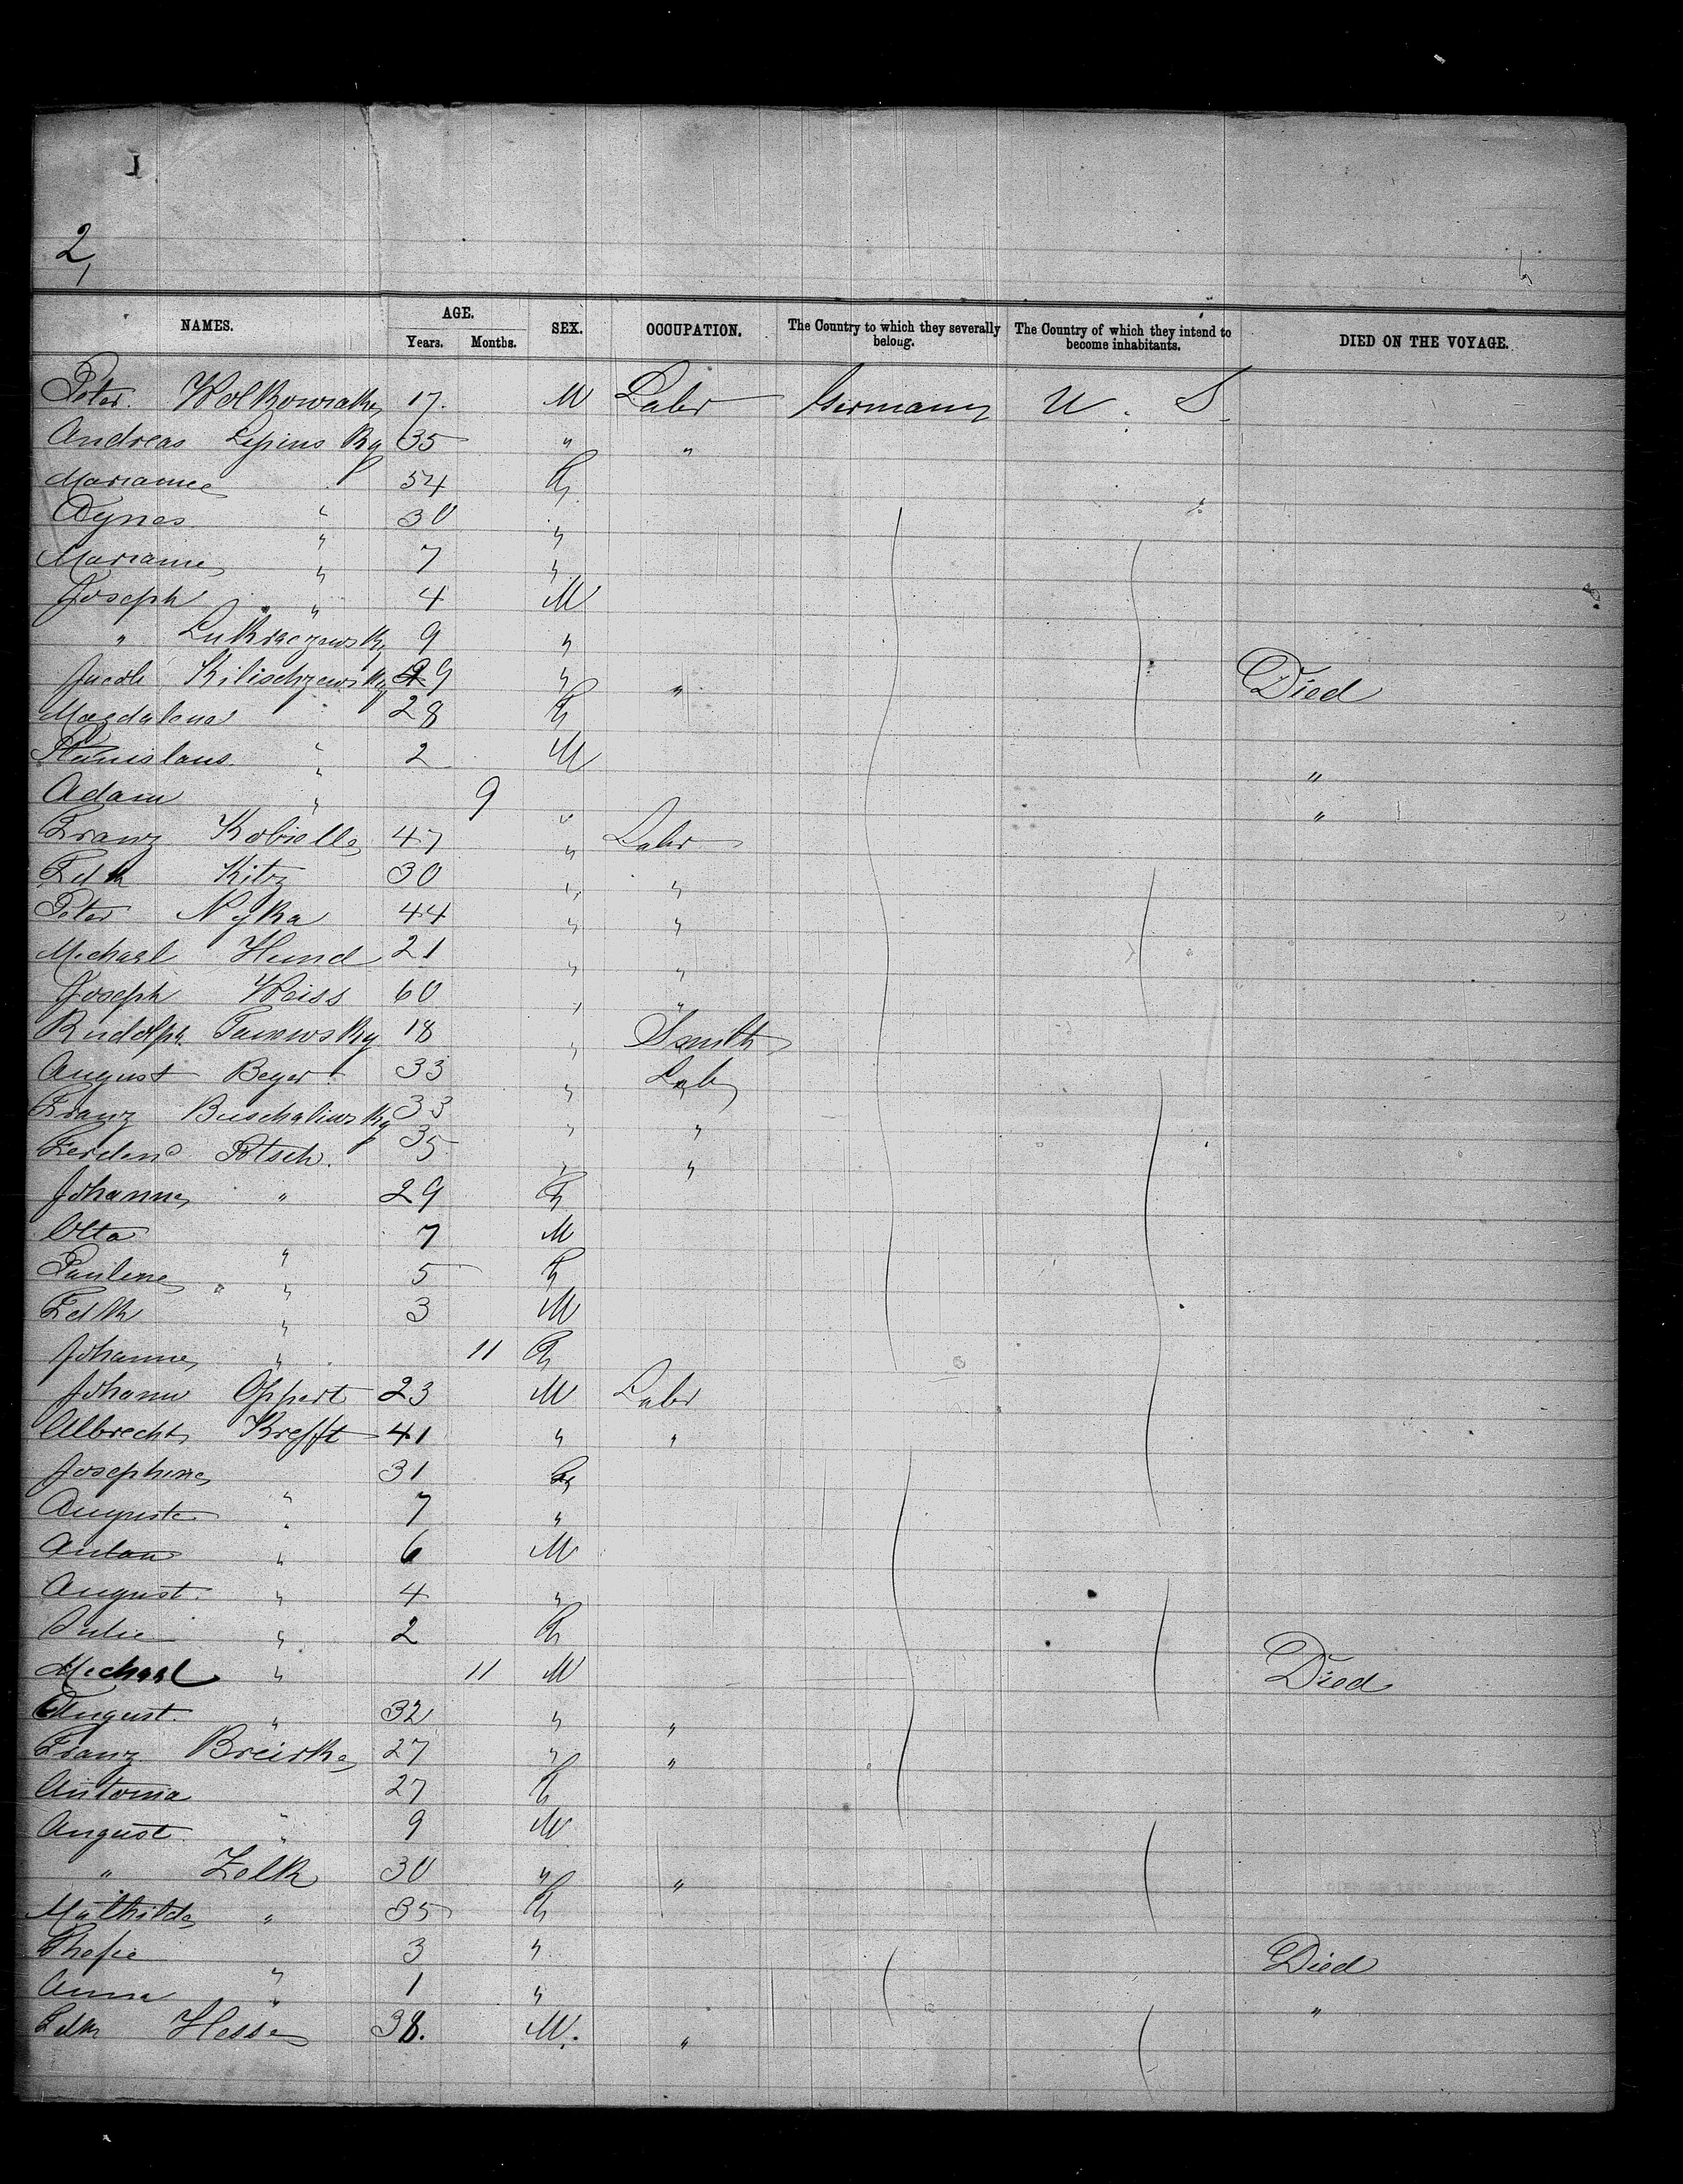 2,
NAMES. AGE. SEX. OCCUPATION. The Country to which they severally belong. The Country of which they intend to become inhabitants. DIED ON THE VOYAGE.
Years. Months.
Peter 17. M Labr Germany U. S.
Andreas Lipinsky 35 " "
Marianne 54 F
Agnes " 30 "
Marianne " 7 "
Joseph " 4 M
" 9 "
Jacob 29 " " Died
Magdalena 28 F
Stanislaus " 2 M "
Adam " 9 " "
Franz Kobiella 47 " Labr
Fdk 30 " "
Peter Nyka 44 " "
Michael Hund 21 " "
Joseph Weiss 60 " "
Rudolph 18 " Smith
August Beyer 33 " Labr
Franz 33 " "
Ferdend 35 " "
Johanne " 29 F
Otto " 7 M
Pauline " " 5 F
Fdk " 3 M
Johanne " 11 F
Johann Oppert 23 M Labr
Albrecht Krefft 41 " "
Josephine " 31 F
Auguste " 7 "
Anton " 6 M
August. " 4 "
Julie " 2 F
Michael " 11 M Died
August. " 32 " "
Franz 27 " "
Antonia 27 F
August " 9 M
" Zelk 30 " "
Mathilde " 35 F
3 " Died
Anna " 1 " "
Fdk Hesse 38. M. "